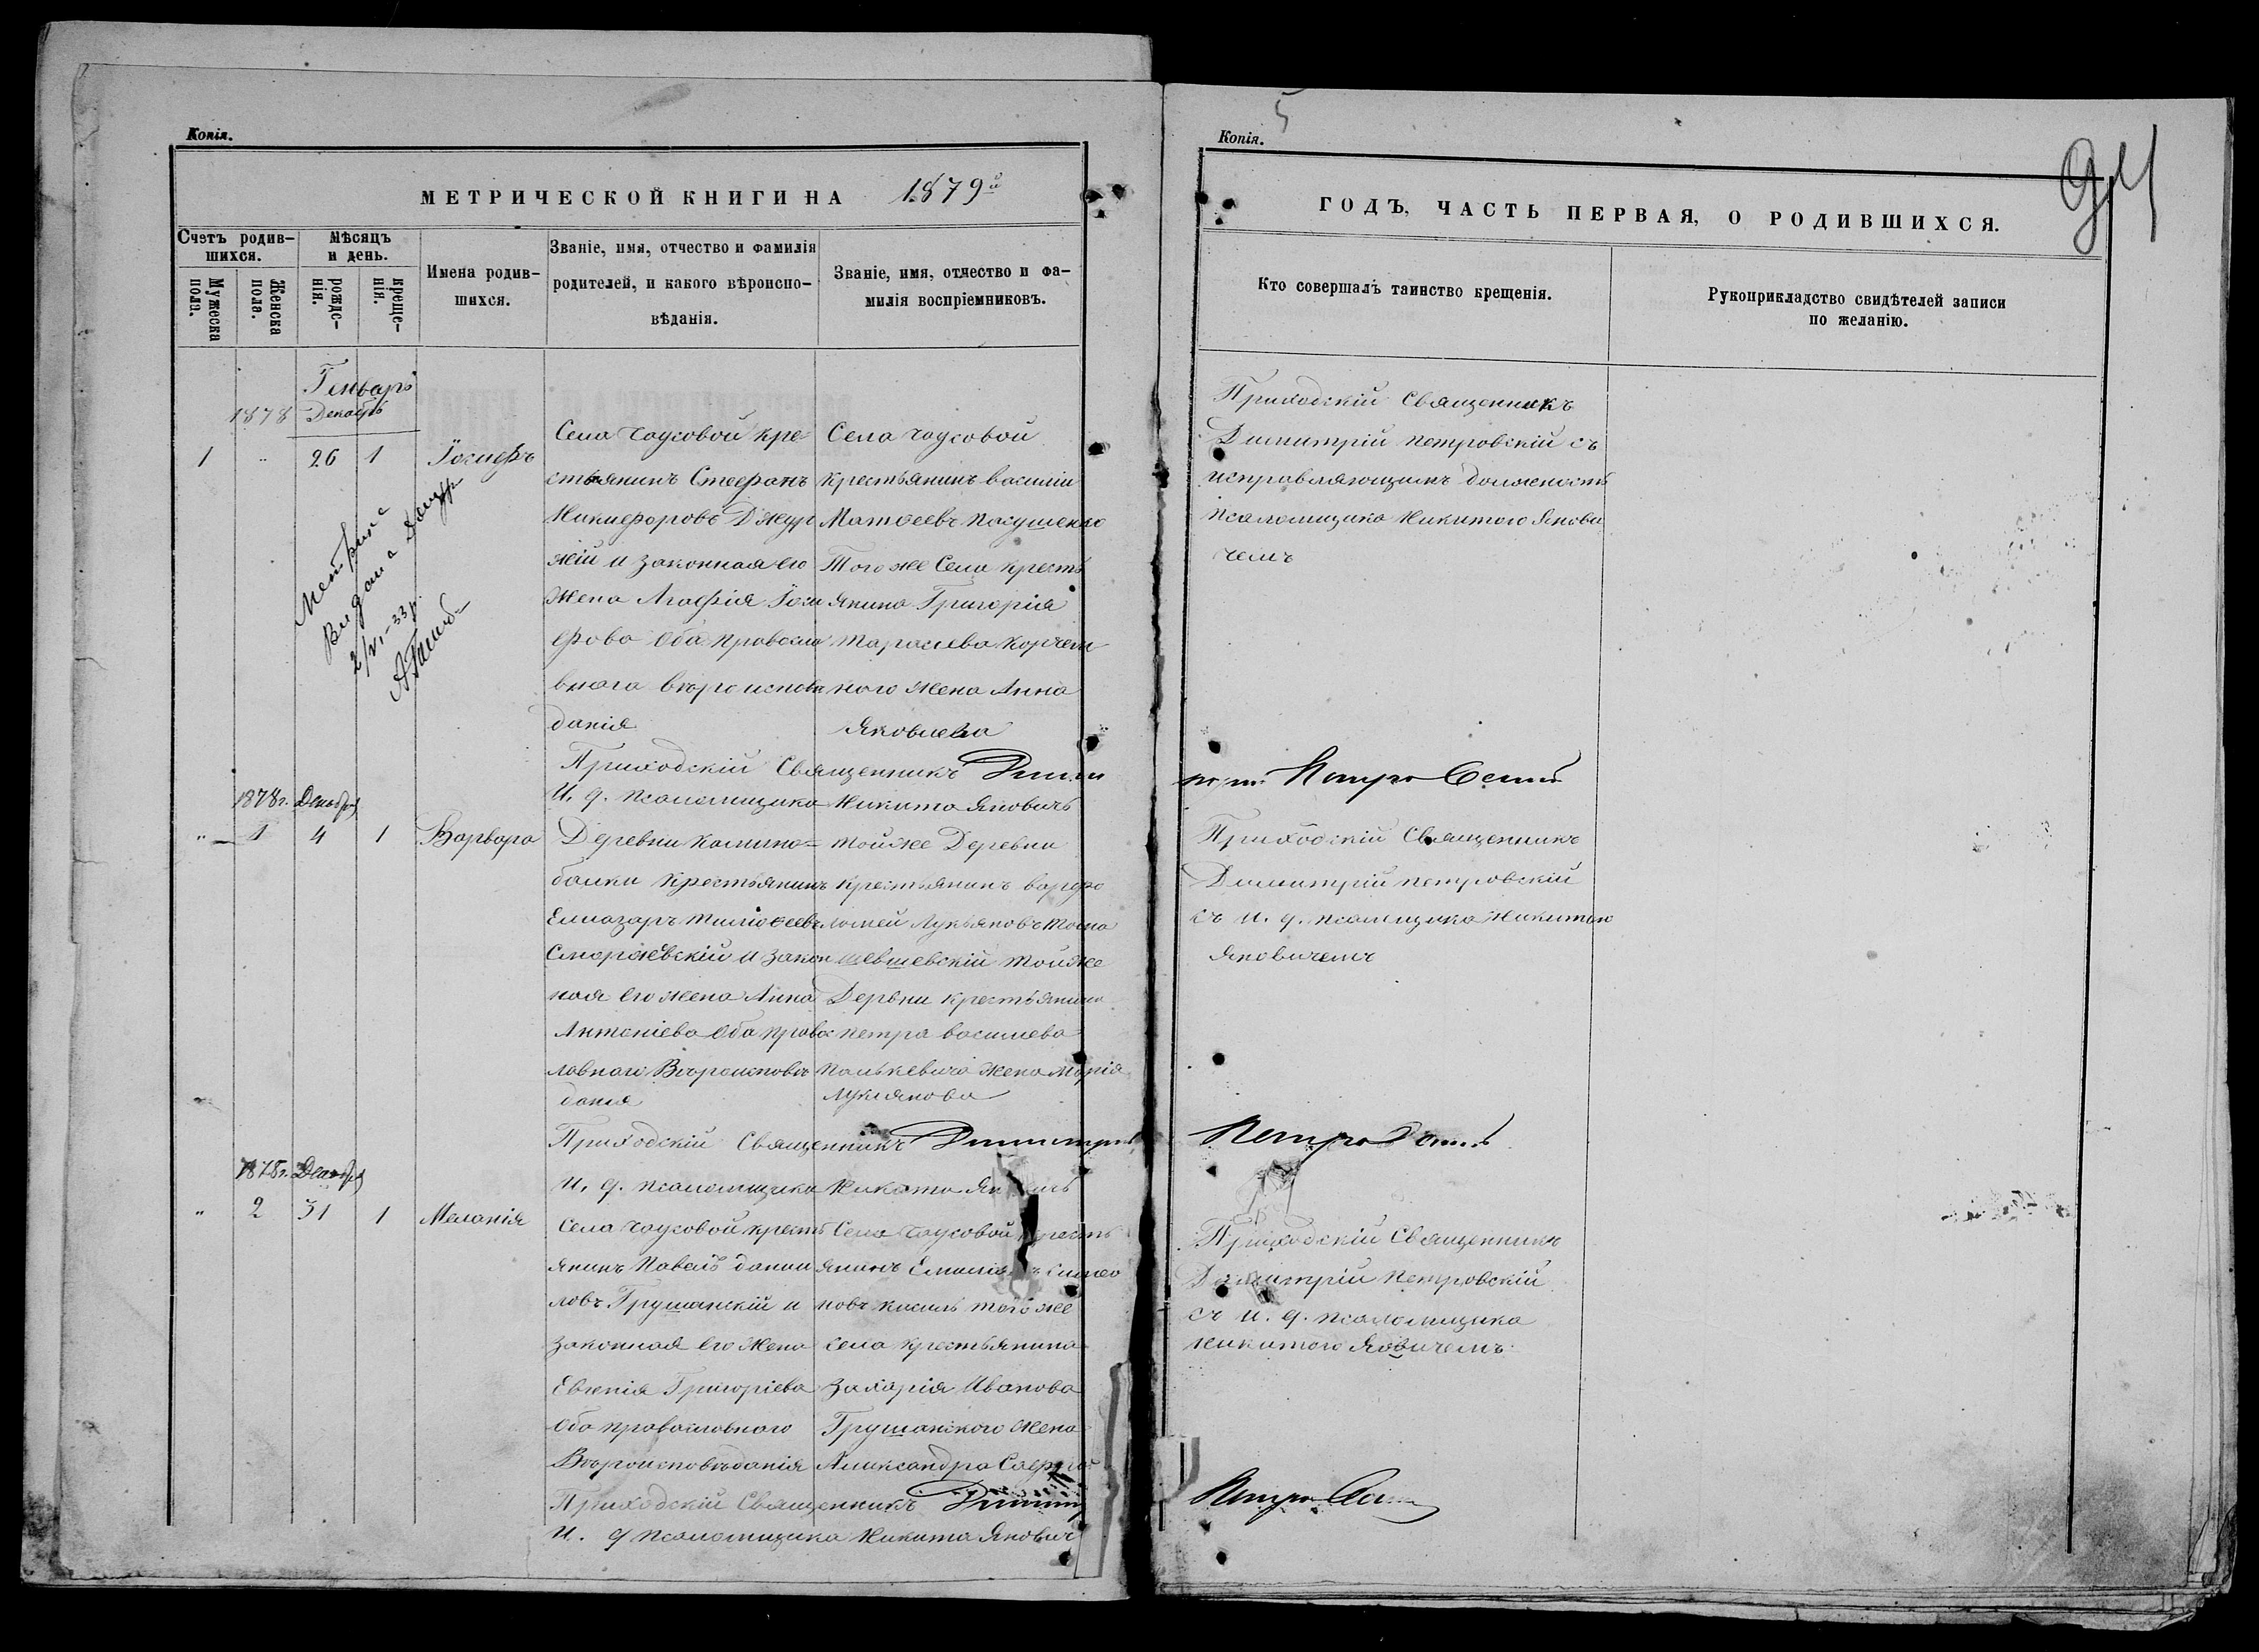 Копія.
МЕТРИЧЕСКОЙ КНИГИ НА 1879й
Счетъ родив-
шихся.
Мужеска
пола.
Женска
пола.
Мѣсяцъ
и день.
рожде-
нія.
креще-
нія.
Имена родив-
шихся.
Званіе, имя, отчество и фамилія
родителей, и какого вѣроиспо-
вѣданія.
Званіе, имя, отчество и фа-
милія воспріемниковъ.
Генварь
1878 Декабрь
1 " 26 1 Іосифъ
Села Чаусовой кре
стьянинъ Стефанъ
Никифоровъ Джур
жій и законная его
Жена Агафія Іоси
фова Оба правосла
внаго вѣроисповѣ
данія
Села Чаусовой
крестьянинъ василій
Матѳеевъ пасушенко
Того же Села кресть
янина Григорія
Тарасьева Корчем
ного жена Анна
Яковлева
Метрика
видана
2/VI-33 р.
Приходскій Священникъ Дими
И. д. псаломщика Никита Яновичъ
1878 г. Декабря
" 1 4 1 Варвара
Деревни Камино=
балки крестьянинъ
Елиазаръ Тимоѳеевъ
Сморжевскій и закон
ная его жена Анна
Антоніева Оба правос
лавнаго Вѣроисповѣ
данія
тойже Деревни
крестьянинъ варфо
ломей Лукьяновъ
тойже
Деревни крестьянина
петра васильева
жена Марія
Лукіянова
Приходскій Священникъ Димитрій
И. д. псаломщика Никита
1878 г. Декабря
" 2 31 1 Меланія
Села Чаусовой кресть
янинъ Павелъ дании
ловъ Грушанскій и
законная его жена
Евгенія Григоріева
Оба православного
Вѣроисповѣданія
Села Чаусовой кресть
янинъ
новъ того же
села крестьянина
Захарія Иванова
Грушанского жена
Александра
Приходскій Священникъ Димит
И. д псаломщика Никита Яновичъ
5
Копія.
94
ГОДЪ, ЧАСТЬ ПЕРВАЯ, О РОДИВШИХСЯ.
Кто совершалъ таинство крещенія.
Рукоприкладство свидѣтелей записи
по желанію.
Приходскій Священникъ
Димитрій петровскій съ
исправляющимъ должность
псаломщика Никитою Янови
чемъ
Приходскій Священникъ
Димитрій петровскій
съ И. д. псаломщика Никитою
Яновичемъ
Приходскій Священникъ
Димитрій петровскій
съ И. д. псаломщика
никитою Яновичемъ